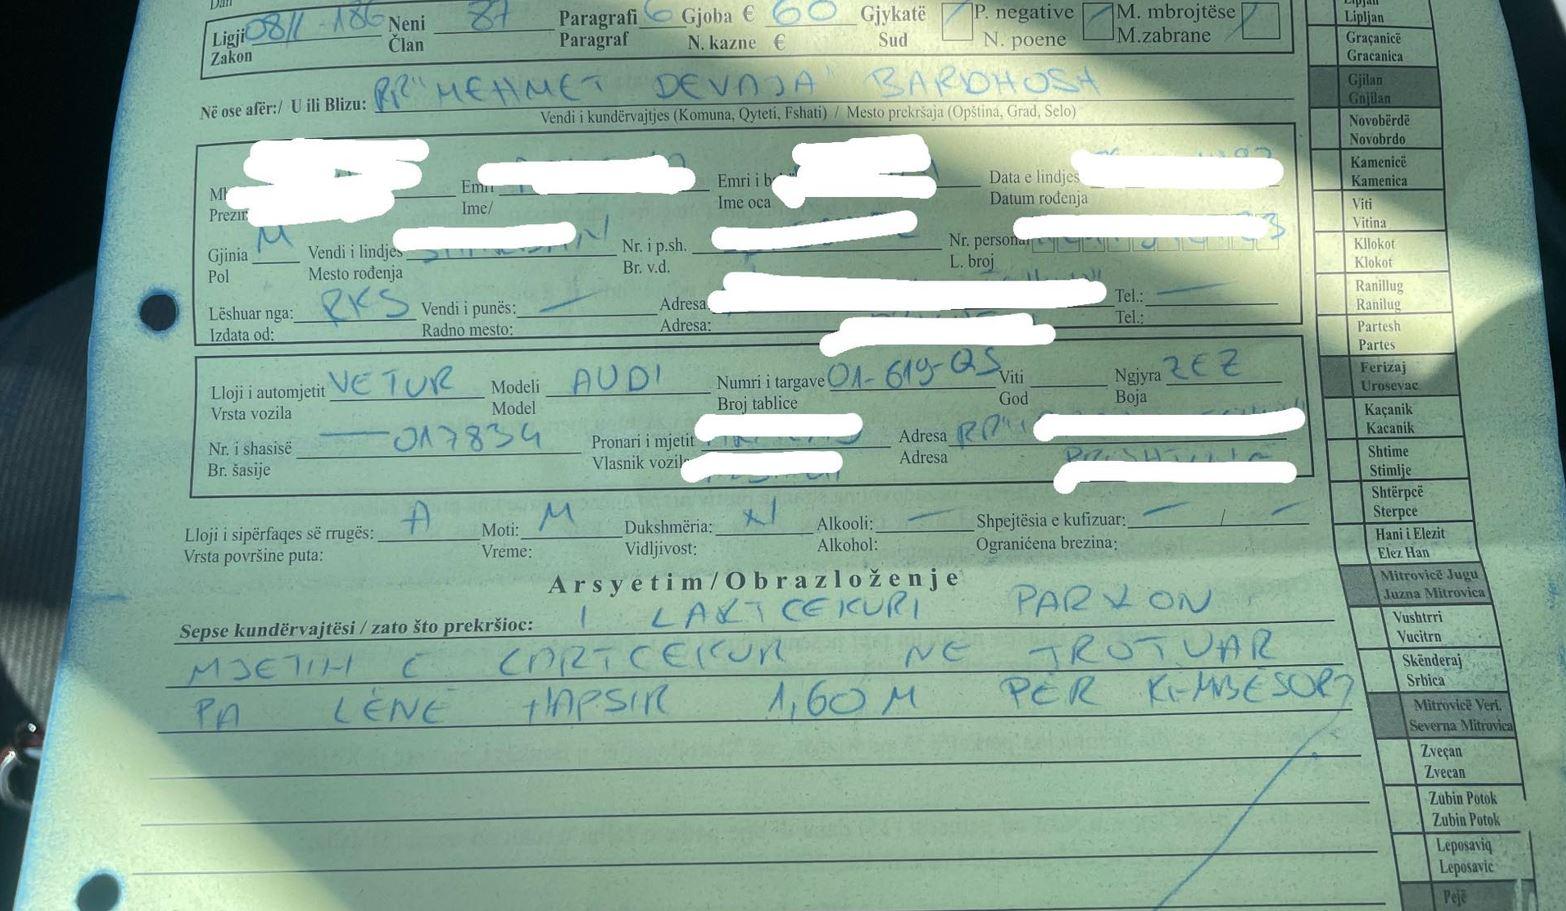 Dan
Ligji 08/L-186 Neni 87 Paragrafi 6 Gjoba € 60 Gjykatë P. negative M. mbrojtëse
Zakon Član Paragraf N. kazne € Sud N. poene M.zabrane
Në ose afër:/ U ili Blizu: RR "MEHMET DEVAJA" BARDHOSH
Vendi i kundërvajtjes (Komuna, Qyteti, Fshati) / Mesto prekršaja (Opština, Grad, Selo)
Emri i b Data e lindjes
Ime/ Ime oca Datum rođenja
Gjinia M Vendi i lindjes Nr. i p.sh. Nr. personal
Pol Mesto rođenja Br. v.d. L. broj
Lëshuar nga: RKS Vendi i punës: — Adresa Tel.: —
Izdata od: Radno mesto: Adresa: Tel.:
Lloji i automjetit VETUR Modeli AUDI Numri i targave 01-619-QS Viti Ngjyra ZEZ
Vrsta vozila Model Broj tablice God Boja
Nr. i shasisë —017834 Pronari i mjetit Adresa RR"
Br. šasije Vlasnik vozil Adresa
Lloji i sipërfaqes së rrugës: A Moti: M Dukshmëria: Alkooli: — Shpejtësia e kufizuar: — / —
Vrsta površine puta: Vreme: Vidljivost: Alkohol: Ograničena brezina:
Arsyetim/Obrazloženje
Sepse kundërvajtësi / zato što prekršioc: I LARTCEKURI PARKON
MJETIN E LARTCEKUR NE TROTUAR
PA LËNË HAPSIR 1,60M PËR KËMBËSOR
Lipjan
Lipljan
Graçanicë
Gracanica
Gjilan
Gnjilan
Novobërdë
Novobrdo
Kamenicë
Kamenica
Viti
Vitina
Kllokot
Klokot
Ranillug
Ranilug
Partesh
Partes
Ferizaj
Urosevac
Kaçanik
Kacanik
Shtime
Stimlje
Shtërpcë
Sterpce
Hani i Elezit
Elez Han
Mitrovicë Jugu
Juzna Mitrovica
Vushtrri
Vucitrn
Skënderaj
Srbica
Mitrovicë Veri.
Severna Mitrovica
Zveçan
Zvecan
Zubin Potok
Zubin Potok
Leposaviq
Leposavic
Pejë